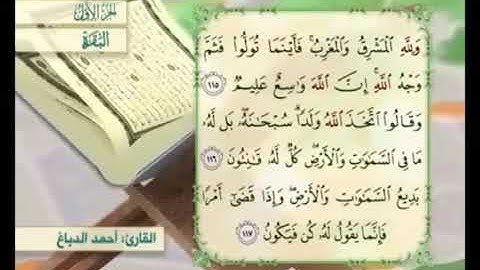 الجزء الأول
البقرة
وَلِلَّهِ الْمَشْرِقُ وَالْمَغْرِبُ ۚ فَأَيْنَمَا تُوَلُّوا فَثَمَّ
وَجْهُ اللَّهِ ۚ إِنَّ اللَّهَ وَاسِعٌ عَلِيمٌ ١١٥
وَقَالُوا اتَّخَذَ اللَّهُ وَلَدًا ۗ سُبْحَانَهُ ۖ بَل لَّهُ
مَا فِي السَّمَوَاتِ وَالْأَرْضِ ۖ كُلٌّ لَّهُ قَانِتُونَ ١١٦
بَدِيعُ السَّمَوَاتِ وَالْأَرْضِ ۖ وَإِذَا قَضَىٰ أَمْرًا
فَإِنَّمَا يَقُولُ لَهُ كُن فَيَكُونُ ١١٧
القارئ: أحمد الدباغ